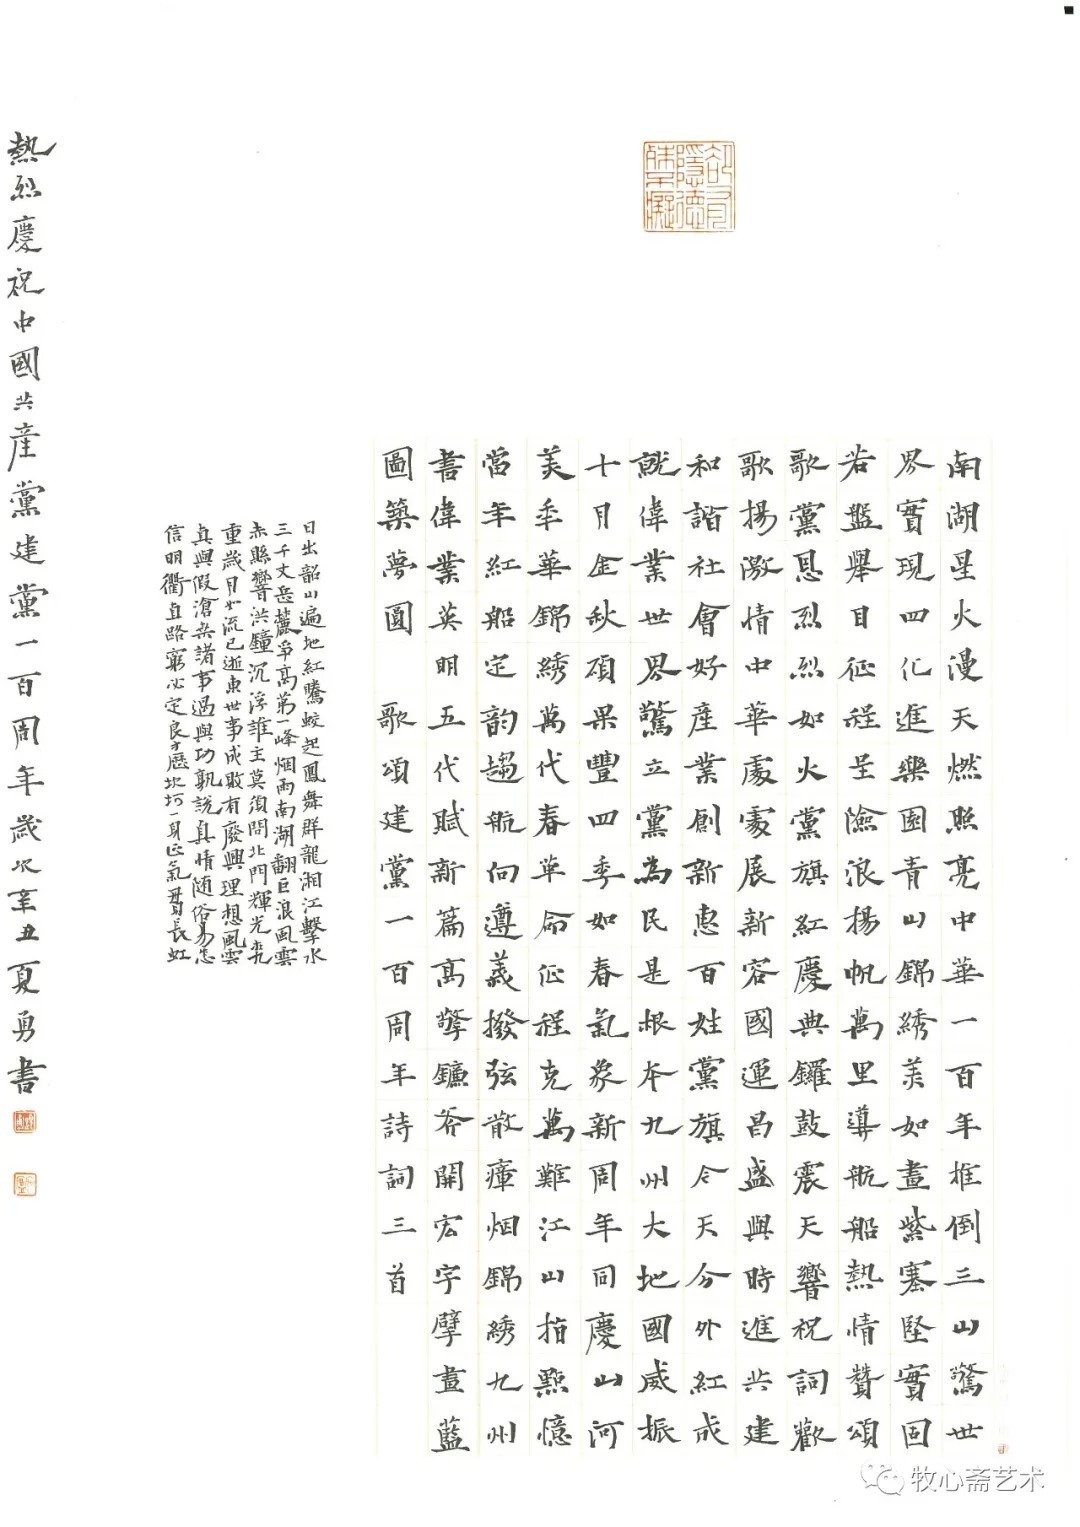 南湖星火漫天燃照亮中華一百年推倒三山驚世
界實現四化進樂園青山錦綉美如畫紫塞堅實固
若盤舉目征程呈險浪揚帆萬里導航船熱情贊頌
歌黨恩烈烈如火黨旗紅慶典鑼鼓震天響祝詞歡
歌揚激情中華處處展新容國運昌盛與時進共建
和諧社會好產業創新惠百姓黨旗今天分外紅成
就偉業世界驚立黨為民是根本九州大地國威振
十月金秋碩果豐四季如春氣象新周年同慶山河
美年華錦綉萬代春革命征程克萬難江山指點憶
當年紅船定韵趨航向遵義撥弦散瘴烟錦綉九州
書偉業英明五代賦新篇高擎鐮斧開宏宇擘畫藍
圖築夢圓 歌頌建黨一百周年詩詞三首
日出韶山遍地紅騰蛟起鳳舞群龍湘江擊水
三千丈岳麓爭高第一峰烟雨南湖翻巨浪風雲
赤縣響洪鐘沉浮誰主莫須問北門輝光
重歲月如流已逝東世事成敗有廢興理想風雲
真與假滄桑諸事過與功孰說真情隨俗易怎
信明衢直路窮必定良才歷坎坷一身正氣貫長虹
熱烈慶祝中國共產黨建黨一百周年歲次辛丑夏勇書
牧心斋艺术